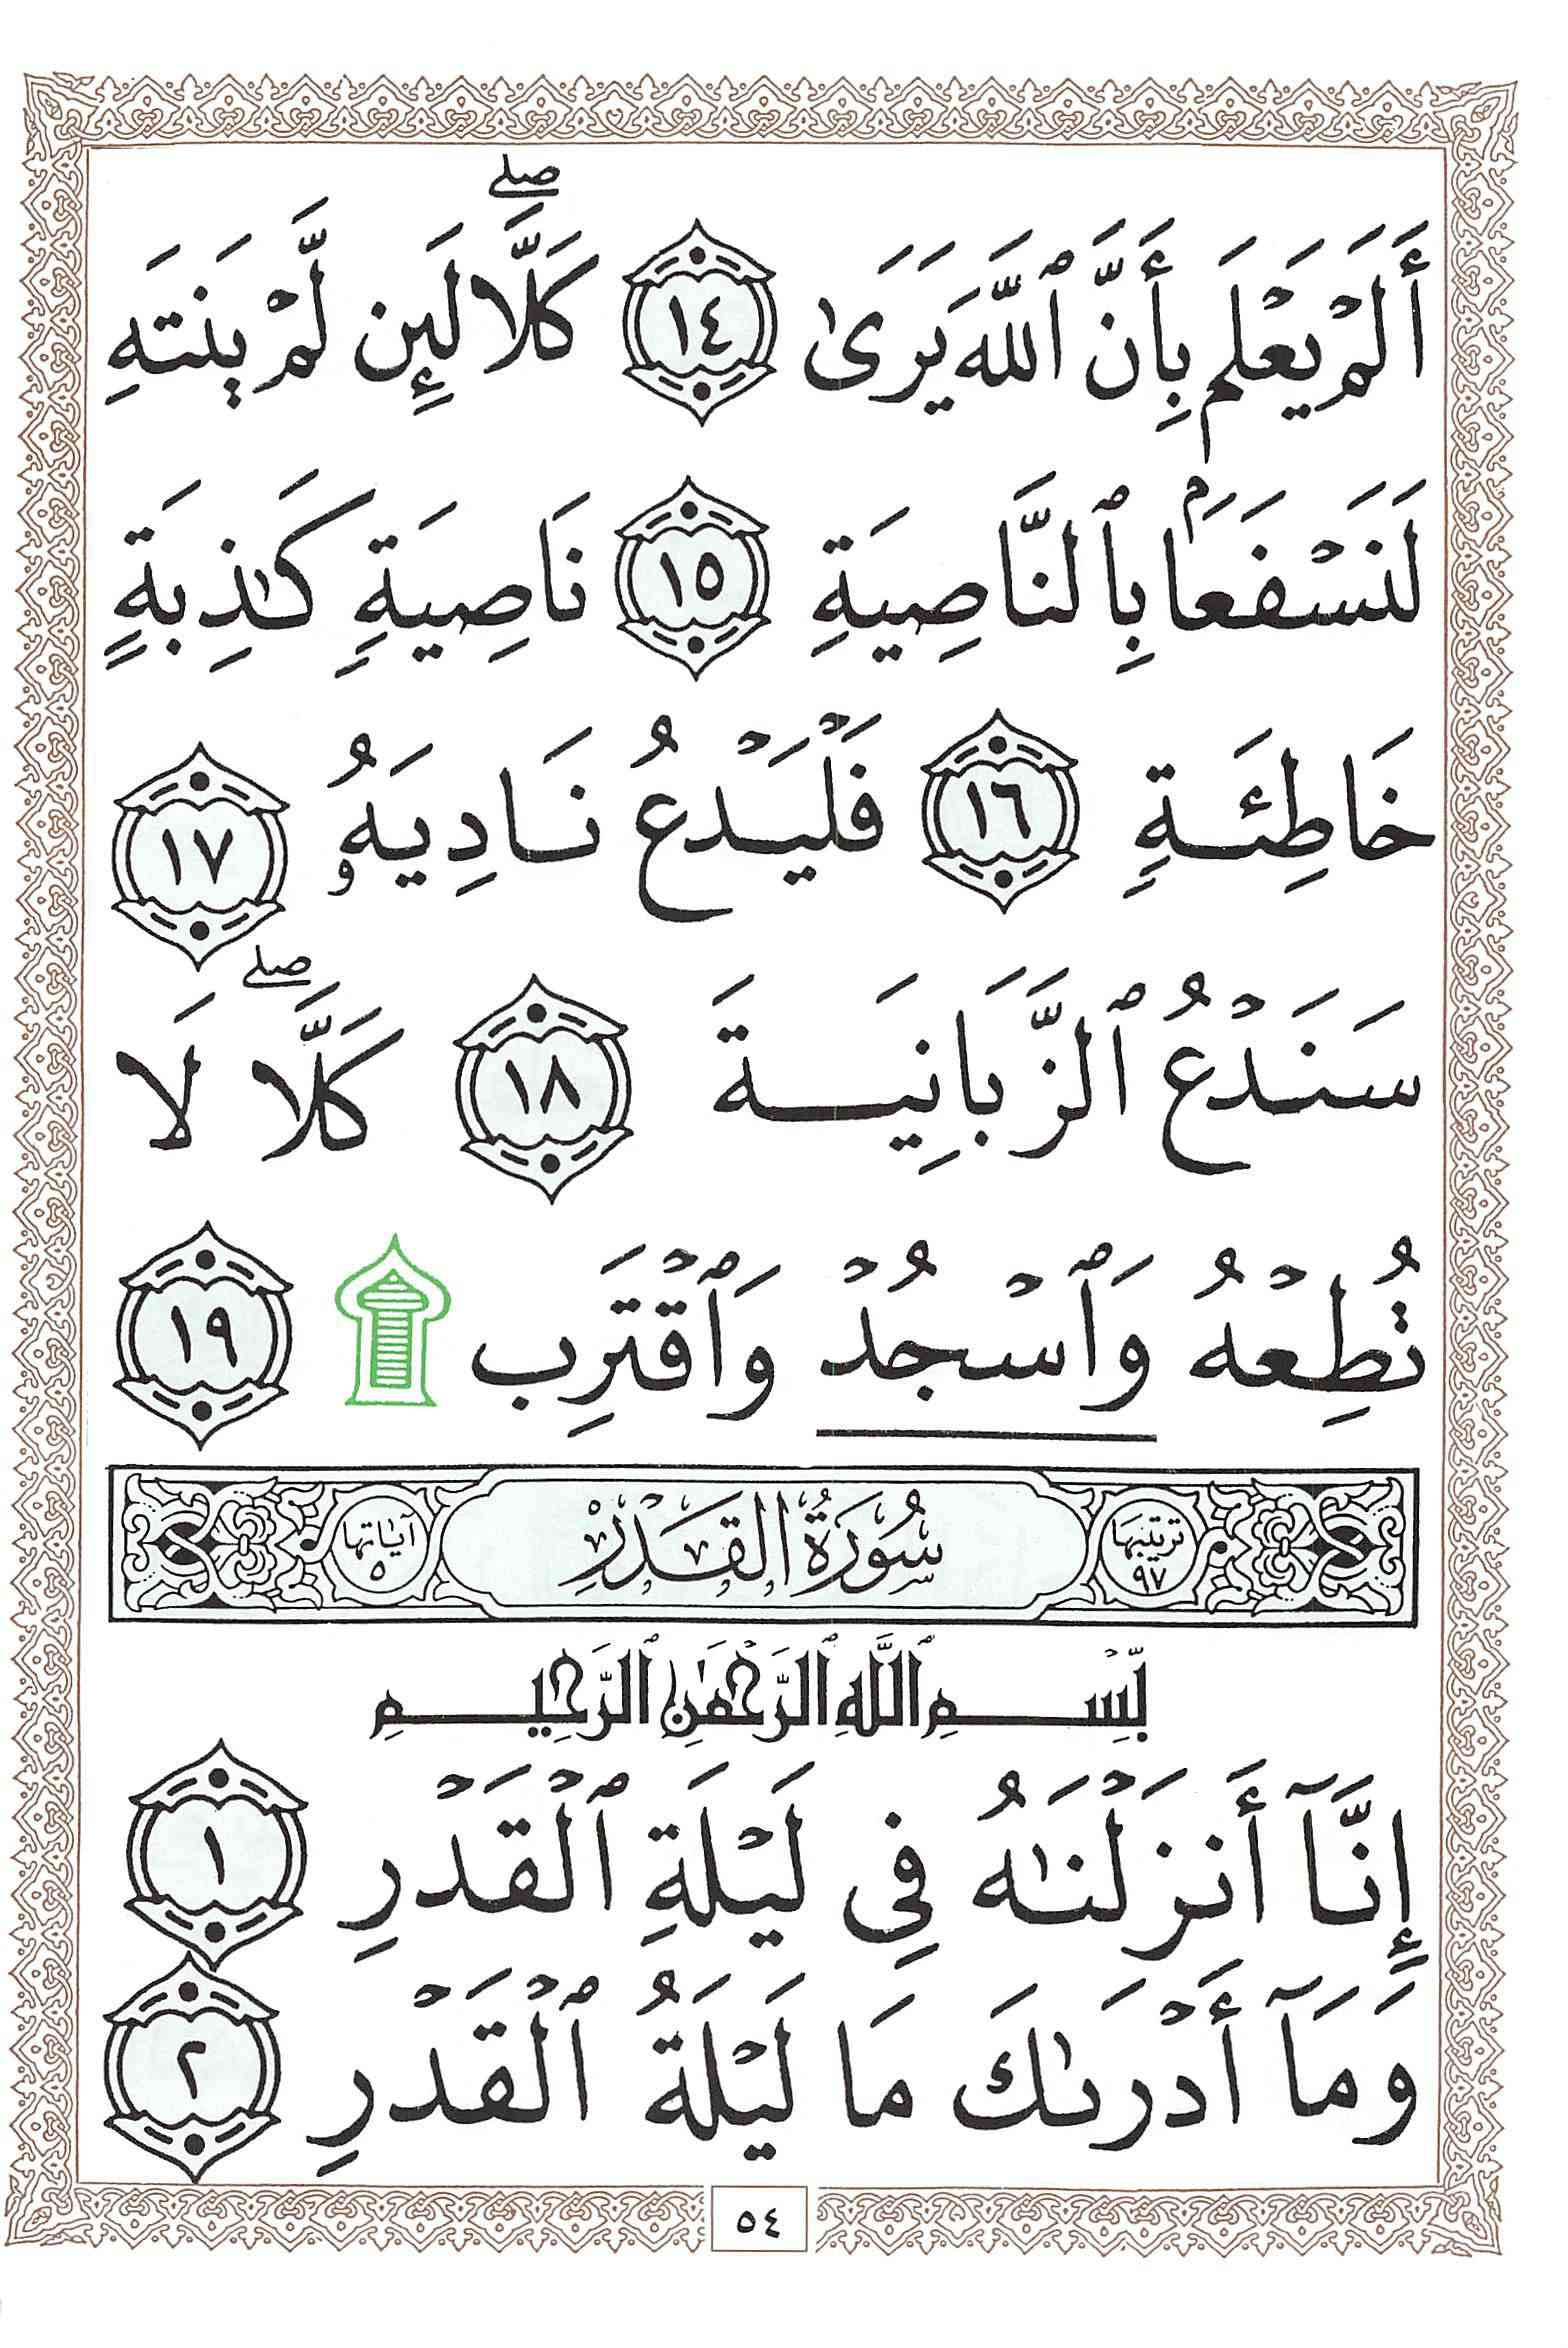 أَلَمْ يَعْلَم بِأَنَّ ٱللَّهَ يَرَىٰ ١٤ كَلَّا ۖ لَئِن لَّمْ يَنتَهِ
لَنَسْفَعَۢا بِٱلنَّاصِيَةِ ١٥ نَاصِيَةٍ كَـٰذِبَةٍ
خَاطِئَةٍ ١٦ فَلْيَدْعُ نَادِيَهُۥ ١٧
سَنَدْعُ ٱلزَّبَانِيَةَ ١٨ كَلَّا ۖ لَا
تُطِعْهُ وَٱسْجُدْ وَٱقْتَرِب ۩ ١٩
ترتيبها ٩٧ سُورَةُ القَدْرِ آياتها ٥
بِّسْمِ ٱللَّهِ ٱلرَّحْمَـٰنِ ٱلرَّحِيمِ
إِنَّآ أَنزَلْنَـٰهُ فِى لَيْلَةِ ٱلْقَدْرِ ١
وَمَآ أَدْرَىٰكَ مَا لَيْلَةُ ٱلْقَدْرِ ٢
٥٤